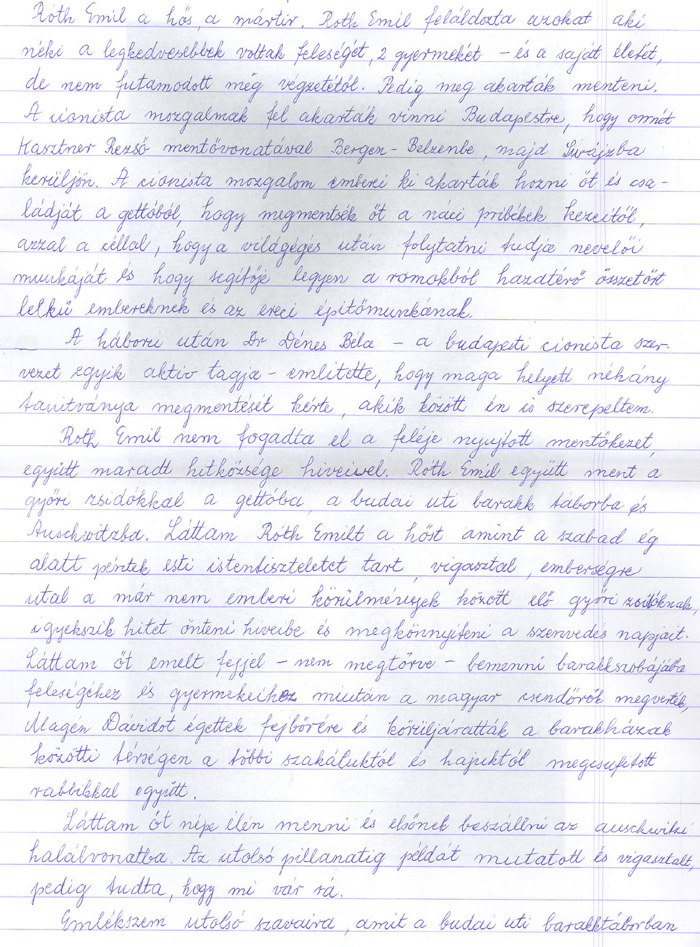 Róth Emil a hős, a mártir. Róth Emil feláldozta azokat aki
néki a legkedvesebbek voltak feleségét, 2 gyermekét – és a saját életét,
de nem futamodott még végzetétől. Pedig meg akarták menteni.
A cionista mozgalmak fel akarták vinni Budapestre, hogy onnét
Kasztner Rezső mentővonatával Bergen-Belzenbe, majd Svájzba
kerüljön. A cionista mozgalom emberei ki akarták hozni őt és csa-
ládját a gettóból, hogy megmentsék őt a náci pribékek kezeitől,
azzal a céllal, hogy a világégés után folytatni tudja nevelői
munkáját és hogy segitője legyen a romokból hazatérő összetört
lelkű embereknek és az ereci épitőmunkának.
A háború után Dr Dénes Béla – a budapeti cionista szer-
vezet egyik aktiv tagja – emlitette, hogy maga helyett néhány
tanitványa megmentését kérte, akik között én is szerepeltem.
Róth Emil nem fogadta el a feléje nyujtott mentőkezet,
együtt maradt hitközsége hiveivel. Róth Emil együtt ment a
győri zsidókkal a gettóba, a budai uti barakk táborba és
Auschwitzba. Láttam Róth Emilt a hőst amint a szabad ég
alatt péntek esti istentiszteletet tart, vigasztal, emberségre
utal a már nem emberi körülmények között élő győri zsidóknak,
igyekszik hitet önteni hiveibe és megkönnyiteni a szenvedés napjait.
Láttam őt emelt fejjel – nem megtörve – bemenni barakkszobájába
feleségéhez és gyermekeihez miután a magyar csendőrök megverték,
Magén Dávidot égettek fejbőrére és körüljáratták a barakházak
közötti térségen a többi szakáluktól és hajuktól megcsufitott
rabbikkal együtt.
Láttam őt népe élén menni és elsőnek beszállni az auschwitzi
halálvonatba. Az utolsó pillanatig példát mutatott és vigasztalt,
pedig tudta, hogy mi vár rá.
Emlékszem utolsó szavaira, amit a budai uti barakktáborban